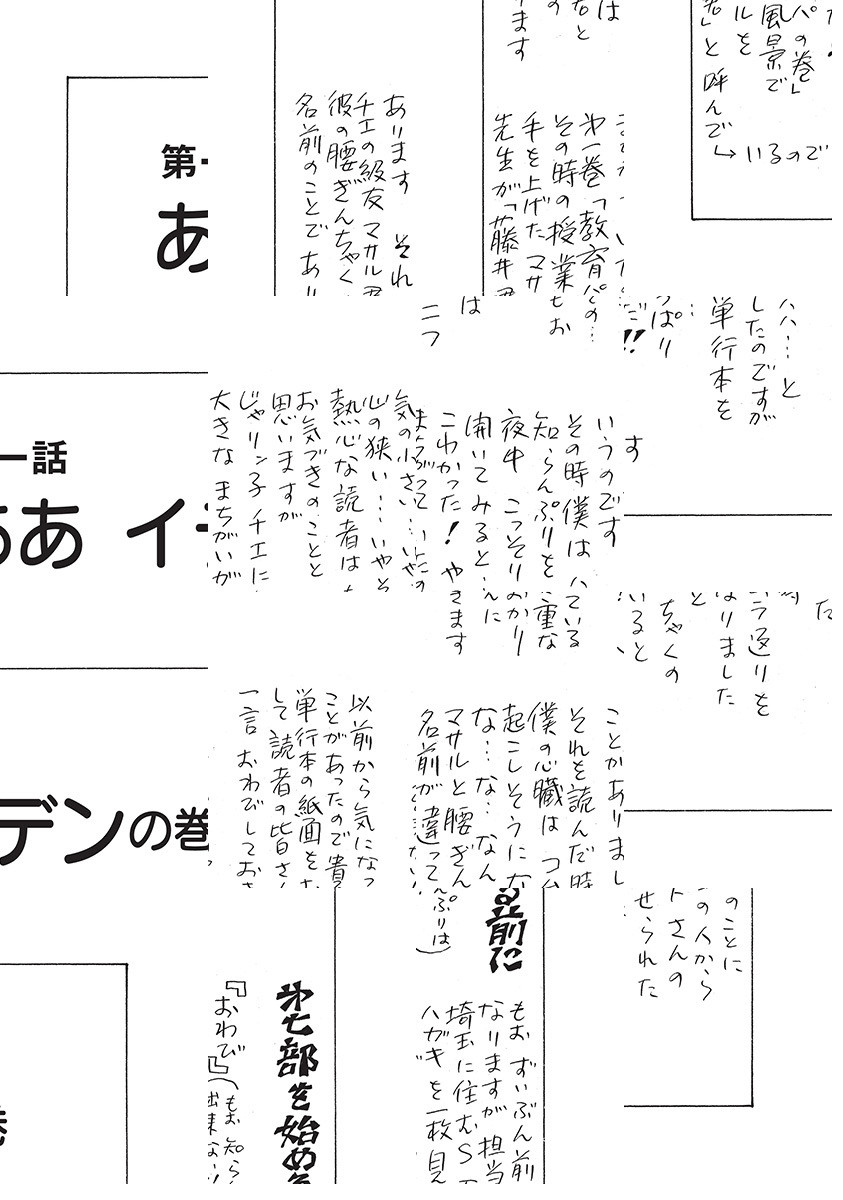 パの巻」
風景で
ルを
君」と呼んで
→いるので
は
君と
の
ります
第一巻「教育パの…
その時の授業
手を上げたマサ
先生が「藤井君
あります それ
チエの級友マサル君
彼の腰ぎんちゃく
名前のことであり
第一
あ
ハハ…と
したのですが
単行本を
っぱり
だ!!
は
ニフ
す
いうのです
その時僕は
知らんぷりを
夜中 こっそり
開いてみると…
こわかった!
やきます
気の小さい…
心の狭い…いやそ
熱心な読者は
お気づきのことと
思いますが
じゃリン子チエに
大きなまちがいが
一話
ああ イ
返りを
なりました
と
ちゃくの
いると
ことがありまし
それを読んだ時
僕の心臓は コ
起こしそうにな
な…な…なん
マサルと腰ぎん
名前が違って
以前から気になっ
ことがあったので貴
単行本の紙面をお
して読者の皆さん
一言 おわびしておき
デンの巻
のことに
の人から
トさんの
せられた
る前に
んぷりは)
もおずいぶん前
なりますが 担当
埼玉に住むS
ハガキを一枚見
第七部を始める
『おわび』
(もお 知らん
出来ない
巻